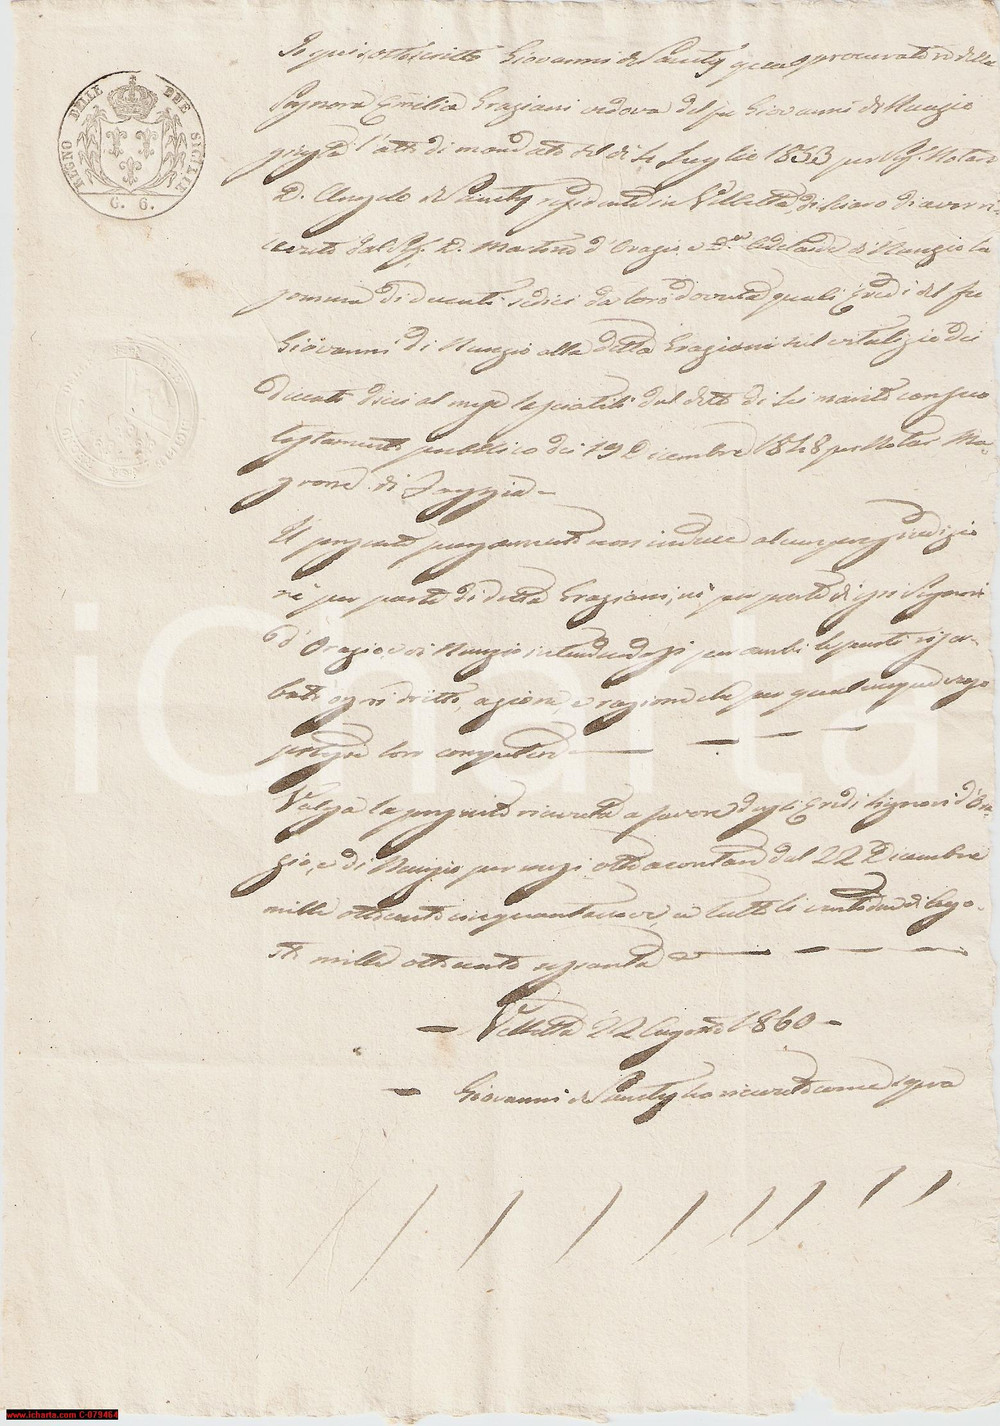 REGNO DELLE DUE SICILIE
G. 6.
Io qui sottoscritto Giovanni de Sanctis qual procuratore della
Signora Emilia Graziani vedova del fu Giovanni di Nunzio
giusta l'atto di mandato del dì 4 Luglio 1853 per Notar
D. Angelo de Sanctis residente in Villetta, dichiaro di aver ri
cevuto dal Sig. D. Martino d'Orazio e D.na Adelaide di Nunzio la
somma di ducati sedici da loro dovuta quali Eredi del fu
Giovanni di Nunzio alla detta Graziani sul vitalizio dei
Ducati dieci al mese lasciatili dal detto di lei marito con suo
testamento pubblico dei 19 Dicembre 1848 per Notar Ma
grone di Foggia
Il presente pagamento non induce alcun pregiudizio
nè per parte di detta Graziani, nè per parte di essi Signori
d'Orazio, e di Nunzio intendendosi per ambi le parti riser-
bati ogni dritto, azione e ragione che per qualunque verso
potesse loro competere
Valga la presente ricevuta a favore degli Eredi Signori d'Ora
zio, e di Nunzio per mesi otto a contare dal 22 Dicembre
mille ottocento cinquantanove a tutto li ventidue di Ago-
sto mille ottocento sessanta
Villetta 22 Agosto 1860
Giovanni de Sanctis ho ricevuto come sopra
iCharta
www.icharta.com C-079464